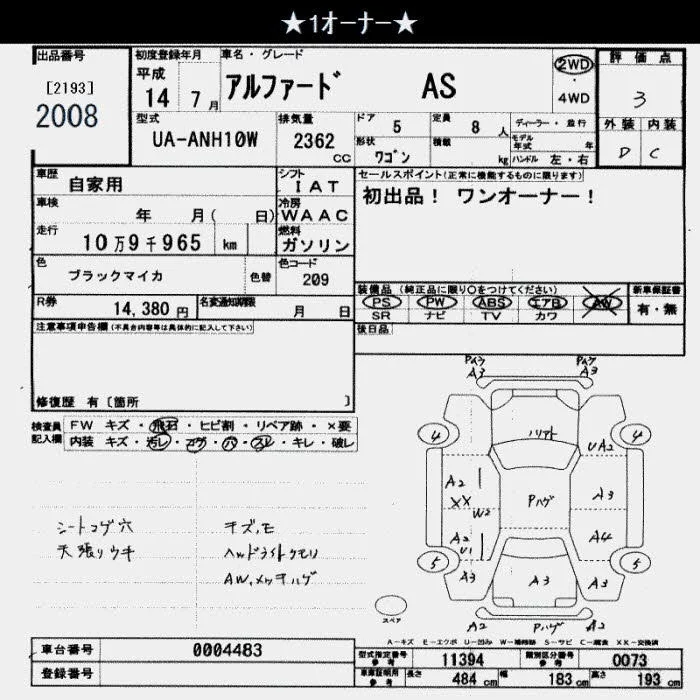 ★1オーナー★
出品番号
[2193]
2008
初度登録年月
平成
14 7月
車名・グレード
アルファード AS
2WD
・
4WD
評価点
3
外装 内装
D C
型式
UA-ANH10W
排気量
2362
cc
ドア 5
定員 8 人
形状 ワゴン
積載 kg
ディーラー・並行
モデル年式 年
ハンドル 左・右
車歴
自家用
シフト
IAT
セールスポイント(正常に機能するものに限ります)
初出品! ワンオーナー!
車検
年 月( 日)
冷房
WAAC
走行
10万9千965 km
燃料
ガソリン
色
ブラックマイカ
色替
色コード
209
装備品 (純正品に限り○をつけてください)
PS ・ PW ・ ABS ・ エアB ・ AW
SR ナビ TV カワ
新車保証書
有・無
R券
14,380 円
名変通知期限
月 日
後日品
注意事項申告欄(不具合内容等は具体的に記入して下さい)
修復歴 有〔箇所 〕
検査員記入欄
FW キズ・飛石・ヒビ割・リペア跡・×要
内装 キズ・汚レ・コゲ・穴・スレ・キレ・破レ
シートコゲ穴
天張りウキ
キズ,モ
ヘッドライトクモリ
AW,メッキハゲ
Pハゲ Pハゲ
A3 A3
4 4
ハリアト
UA2
A2
XX
W2
Pハゲ
A3
A2
U1
A4
5 5
A3 A3 A3
スペア
A2 Pハゲ A2
A-キズ E-エクボ U-凹み W-補修跡 S-サビ C-腐食 XX-交換済
車台番号
0004483
登録番号
型式指定番号
参考
11394
類別区分番号
参考
0073
車庫証明用
参考
長さ 484 cm
幅 183 cm
高さ 193 cm